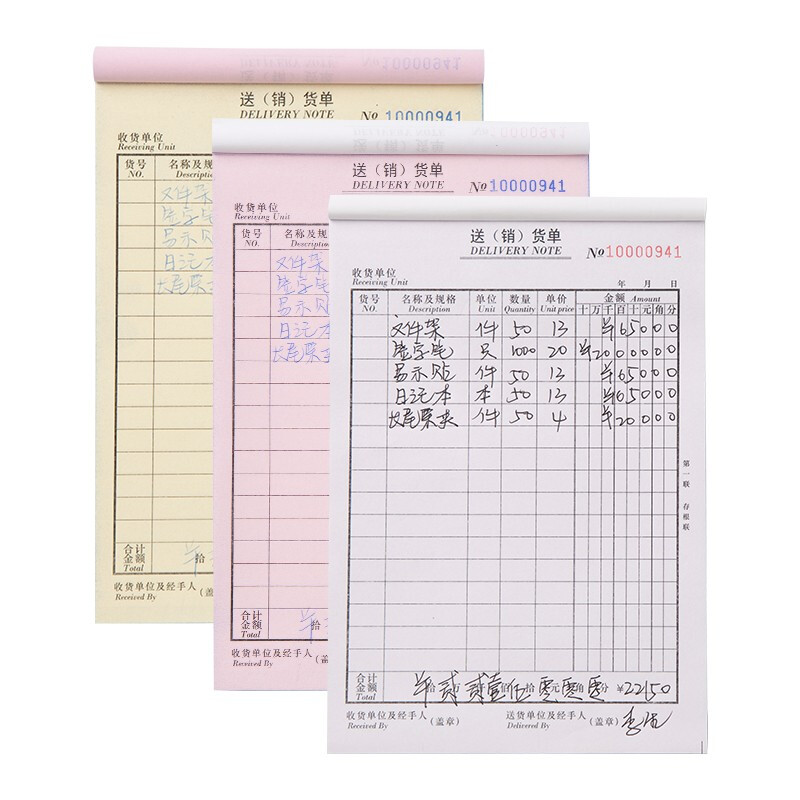 送（销）货单
DELIVERY NOTE
No 10000941
收货单位
Receiving Unit
货号 名称及规
NO. Descripti
文件架
签字笔
易示贴
日记本
长尾票夹
合计
金额
Total
拾
收货单位及经手人（盖
Received By
送（销）货单
DELIVERY NOTE
No 10000941
收货单位
Receiving Unit
货号 名称及规
NO. Description
文件架
签字笔
易示贴
日记本
长尾票夹
合计
金额
Total
拾
收货单位及经手人（盖
Received By
送（销）货单
DELIVERY NOTE
No 10000941
收货单位
Receiving Unit
年 月 日
货号 名称及规格 单位 数量 单价 金额 Amount
NO. Description Unit Quantity Unit price 十万千百十元角分
文件架 件 50 13 ¥65000
签字笔 只 1000 20 ¥2000000
易示贴 件 50 13 ¥65000
日记本 本 50 13 ¥65000
长尾票夹 件 50 4 ¥20000
第一联 存根联
合计
金额
Total
拾万仟佰拾元角分 ¥22150
收货单位及经手人（盖章） 送货单位及经手人（盖章）
Received By Delivered By